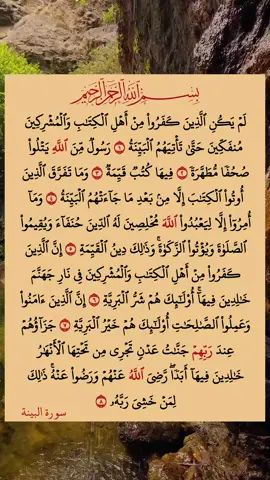 بِسْمِ اللَّهِ الرَّحْمَٰنِ الرَّحِيمِ
لَمْ يَكُنِ الَّذِينَ كَفَرُوا۟ مِنْ أَهْلِ الْكِتَٰبِ وَالْمُشْرِكِينَ
مُنفَكِّينَ حَتَّىٰ تَأْتِيَهُمُ الْبَيِّنَةُ ١ رَسُولٌ مِّنَ اللَّهِ يَتْلُوا۟
صُحُفًا مُّطَهَّرَةً ٢ فِيهَا كُتُبٌ قَيِّمَةٌ ٣ وَمَا تَفَرَّقَ الَّذِينَ
أُوتُوا۟ الْكِتَٰبَ إِلَّا مِنۢ بَعْدِ مَا جَآءَتْهُمُ الْبَيِّنَةُ ٤ وَمَآ
أُمِرُوٓا۟ إِلَّا لِيَعْبُدُوا۟ اللَّهَ مُخْلِصِينَ لَهُ الدِّينَ حُنَفَآءَ وَيُقِيمُوا۟
الصَّلَوٰةَ وَيُؤْتُوا۟ الزَّكَوٰةَ ۚ وَذَٰلِكَ دِينُ الْقَيِّمَةِ ٥ إِنَّ الَّذِينَ
كَفَرُوا۟ مِنْ أَهْلِ الْكِتَٰبِ وَالْمُشْرِكِينَ فِى نَارِ جَهَنَّمَ
خَٰلِدِينَ فِيهَآ ۚ أُو۟لَٰٓئِكَ هُمْ شَرُّ الْبَرِيَّةِ ٦ إِنَّ الَّذِينَ ءَامَنُوا۟
وَعَمِلُوا۟ الصَّٰلِحَٰتِ أُو۟لَٰٓئِكَ هُمْ خَيْرُ الْبَرِيَّةِ ٧ جَزَآؤُهُمْ
عِندَ رَبِّهِمْ جَنَّٰتُ عَدْنٍ تَجْرِى مِن تَحْتِهَا الْأَنْهَٰرُ
خَٰلِدِينَ فِيهَآ أَبَدًا ۖ رَّضِىَ اللَّهُ عَنْهُمْ وَرَضُوا۟ عَنْهُ ۚ ذَٰلِكَ
لِمَنْ خَشِىَ رَبَّهُۥ ٨
سورة البينة